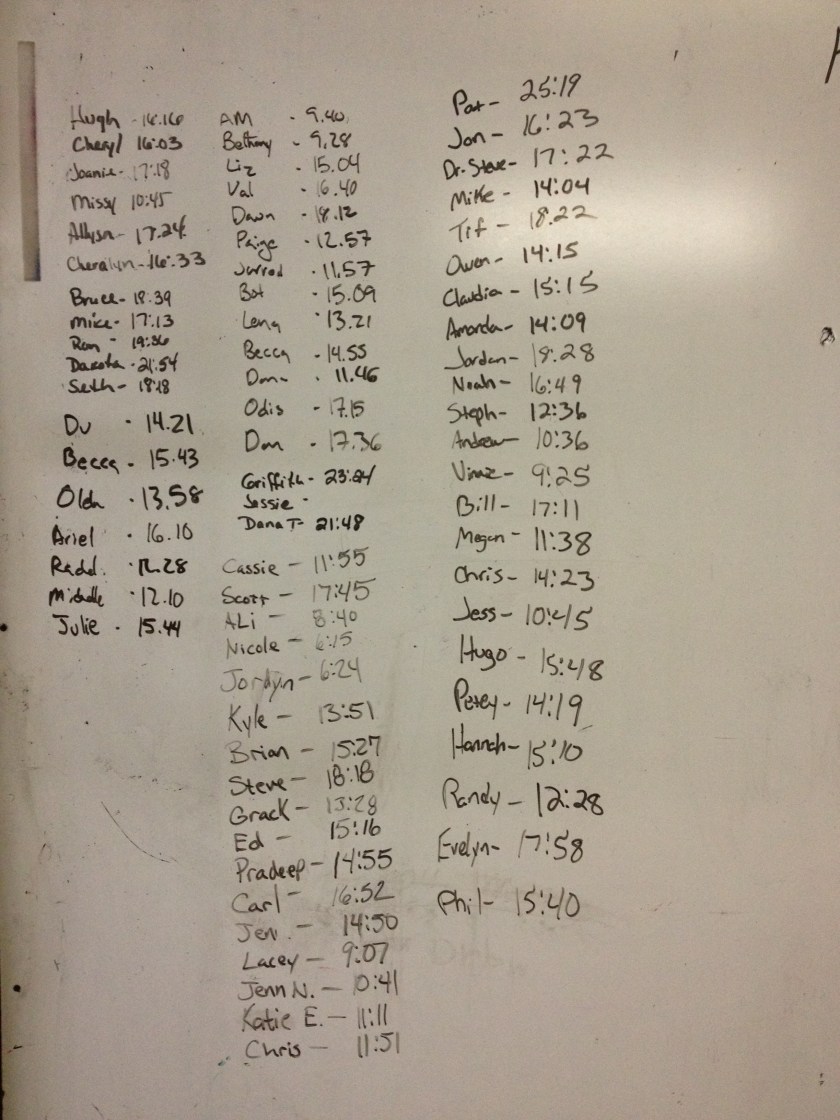 Hugh - 16.16
Cheryl 16:03
Joanie - 17:18
Missy 10:45
Allysn - 17.24
Cheralyn - 16:33
Bruce - 18:39
Mike - 17:13
Ron - 19:36
Dakota - 21:54
Seth - 18:18
Du - 14.21
Becca - 15.43
Olda - 13.58
Ariel - 16.10
12.28
Michelle - 12.10
Julie - 15.44
AM - 9.40
Bethany - 9.28
Liz - 15.04
Val - 16.40
Dawn - 18.12
Paige - 12.57
Jarrod - 11.57
Bot - 15.09
Lena - 13.21
Becca - 14.55
11.46
Odis - 17.15
Dan - 17.36
Griffith - 23:24
Jessie -
Dana T - 21:48
Cassie - 11:55
Scott - 17:45
ALi - 8:40
Nicole - 6:15
Jordyn - 6:24
Kyle - 13:51
Brian - 15:27
Steve - 18:18
Grack - 13:28
Ed - 15:16
Pradeep - 14:55
Carl - 16:52
Jen - 14:50
Lacey - 9:07
Jenn N. - 10:41
Katie E. - 11:11
Chris - 11:51
Pat - 25:19
Jon - 16:23
Dr. Steve - 17:22
Mike - 14:04
Tif - 18.22
Owen - 14:15
Claudia - 15:15
Amanda - 14:09
Jordan - 18:28
Noah - 16:49
Steph - 12:36
Andrew - 10:36
Vinnz - 9:25
Bill - 17:11
Megan - 11:38
Chris - 14:23
Jess - 10:45
Hugo - 15:48
Petey - 14:19
Hannah - 15:10
Randy - 12:28
Evelyn - 17:58
Phil - 15:40